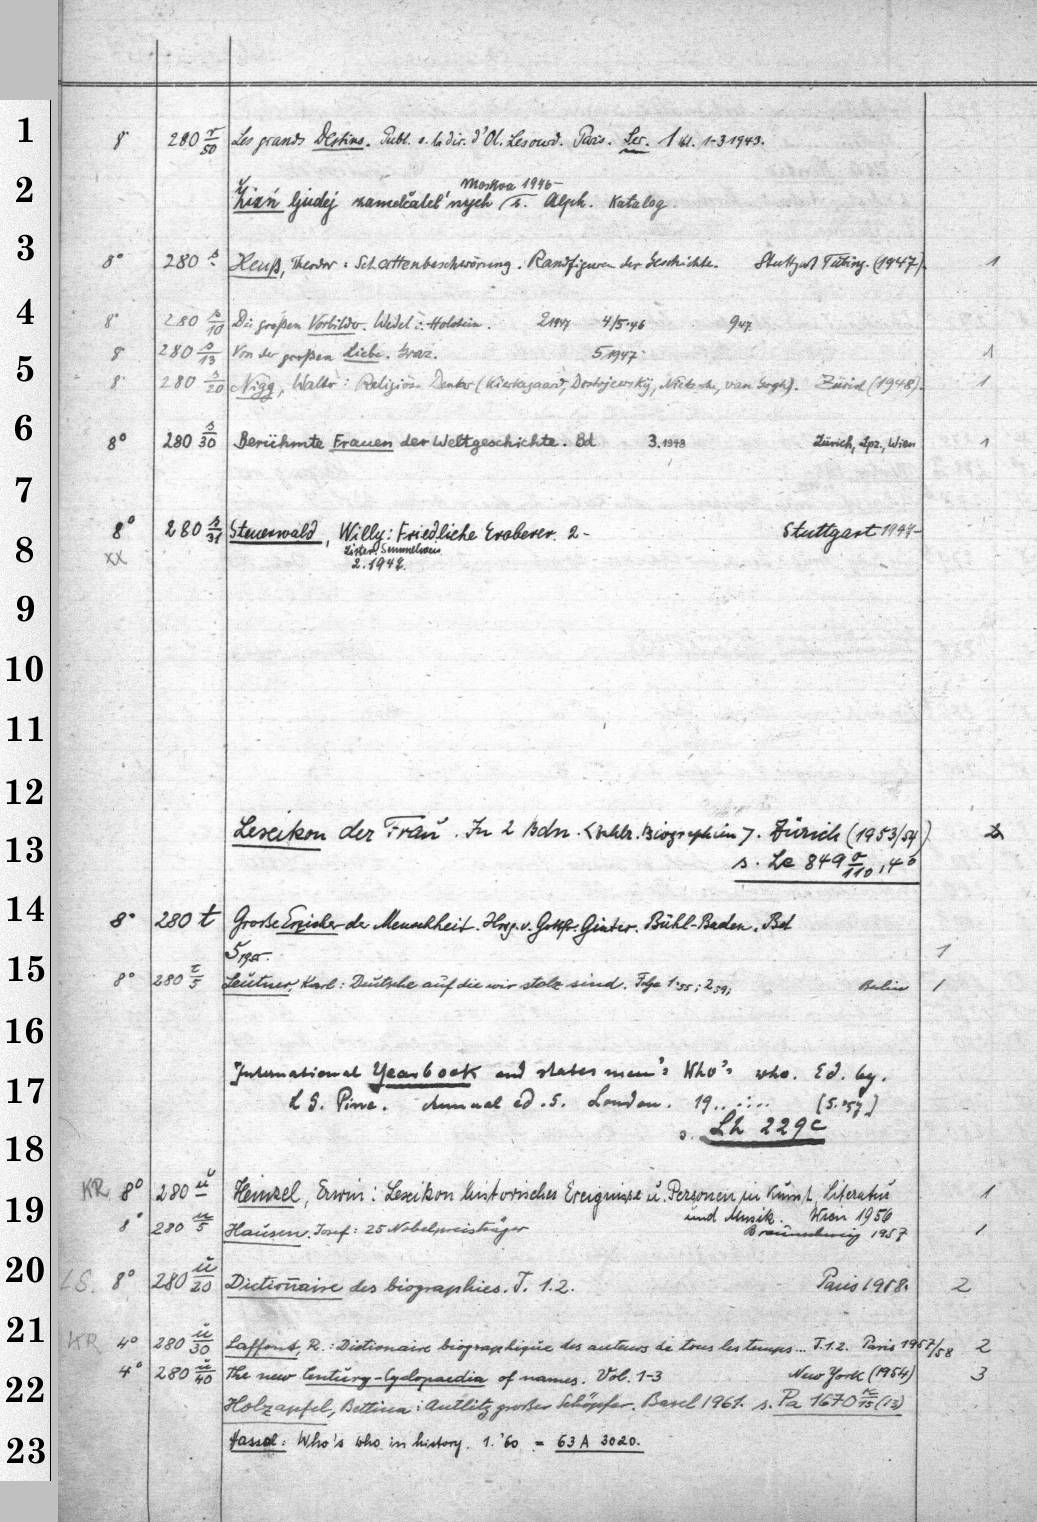 1 8° 280 r/50 Les grands Destins. Publ. s. la dir. d'Ol. Lesourd. Paris. Ser. 1 1-3 1943.
Moskva 1946-
2 Žizń ljudej zamečatel'nych s. Alph. Katalog.
3 8° 280 s Heuß, Theodor: Schattenbeschwörung. Randfiguren der Geschichte. Stuttgart Tübing. (1947). 1
4 8° 280 s/10 Die großen Vorbilder. Wedel i. Holstein. 2 1947 4/5.46 9 47
8 280 s/13 Von der großen Liebe. Graz. 5 1947 1
5 8° 280 s/20 Nigg, Walter: Religiöse Denker (Kierkegaard, Dostojewskij, Nietzsche, van Gogh). Zürich (1948). 1
6 8° 280 s/30 Berühmte Frauen der Weltgeschichte. Bd 3. 1948 Zürich, Lpz., Wien 1
7
8° 280 s/31 Steuerwald, Willy: Friedliche Eroberer. 2- Stuttgart 1947-
8 xx Lister. Semmelweis
2. 1947.
9
10
11
12
13 Lexikon der Frau. In 2 Bdn. <zahlr. Biographien>. Zürich (1953/54) 2
s. Le 849 r/110, 4°
14 8° 280 t Große Erzieher der Menschheit. Hrsg. v. Günter. Bühl-Baden. Bd
5 1
15 8° 280 t/5 Leutner, Karl: Deutsche auf die wir stolz sind. Folge 1.55; 2 59; Berlin 1
16
International Yearbook and statesmen's Who's who. Ed. by.
17 L G. Pine. Annual ed. 5. London. 19.. (5.'57)
s. Lh 229c
18
KR 8° 280 u Heinzel, Erwin: Lexikon historischer Ereignisse u. Personen in Kunst, Literatur 1
19 und Musik. Wien 1956
8° 280 u/5 Hausen, Josef: 25 Nobelpreisträger Braunschweig 1957 1
20 LS. 8° 280 u/20 Dictionnaire des biographies. T. 1.2. Paris 1958. 2
21 KR 4° 280 u/30 Laffont, R.: Dictionaire biographique des auteurs de tous les temps... T.1.2. Paris 1957/58 2
4° 280 u/40 The new Century-Cyclopaedia of names. Vol. 1-3 New York (1954) 3
22 Holzapfel, Bettina: Antlitz großer Schöpfer. Basel 1961. s. Pa 1670 /15 (13)
23 Hassal: Who's who in history. 1. '60 = 63 A 3020.